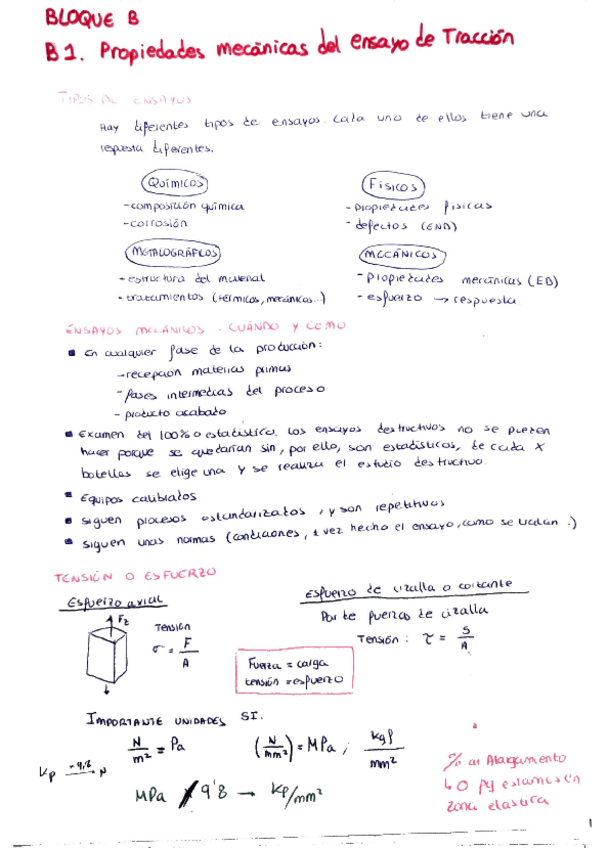 BLOQUE B
B1. Propiedades mecánicas del ensayo de Tracción
TIPOS DE ENSAYOS
Hay diferentes tipos de ensayos. Cada uno de ellos tiene una
respuesta diferentes.
Químicos
- composición química
- corrosión
Físicos
- propiedades físicas
- defectos (END)
METALOGRÁFICOS
- estructura del material
- tratamientos (térmicos, mecánicos...)
MECÁNICOS
- Propiedades mecánicas (ED)
- esfuerzo → respuesta
ENSAYOS MECÁNICOS. CUÁNDO Y COMO
En cualquier fase de la producción:
- recepción materias primas
- fases intermedias del proceso
- producto acabado
Examen del 100% o estadístico. Los ensayos destructivos no se pueden
hacer porque se quedarían sin, por ello, son estadísticos, de cada X
botellas se elige una y se realiza el estudio destructivo.
Equipos calibrados
siguen procesos estandarizados, y son repetitivos
siguen unas normas (condiciones, 1 vez hecho el ensayo, como se
TENSIÓN O ESFUERZO
Esfuerzo axial
Fz
TENSIÓN
σ = F/A
Esfuerzo de cizalla o cortante
Par de fuerzas de cizalla
TENSIÓN: τ = S/A
Fuerza = carga
tensión = esfuerzo
IMPORTANTE UNIDADES SI.
N/m² = Pa
(N/mm²) = MPa ; kgf/mm²
Kp ·9,8 → N
MPa / 9'8 → Kp/mm²
% al Alargamiento
zona elástica
1